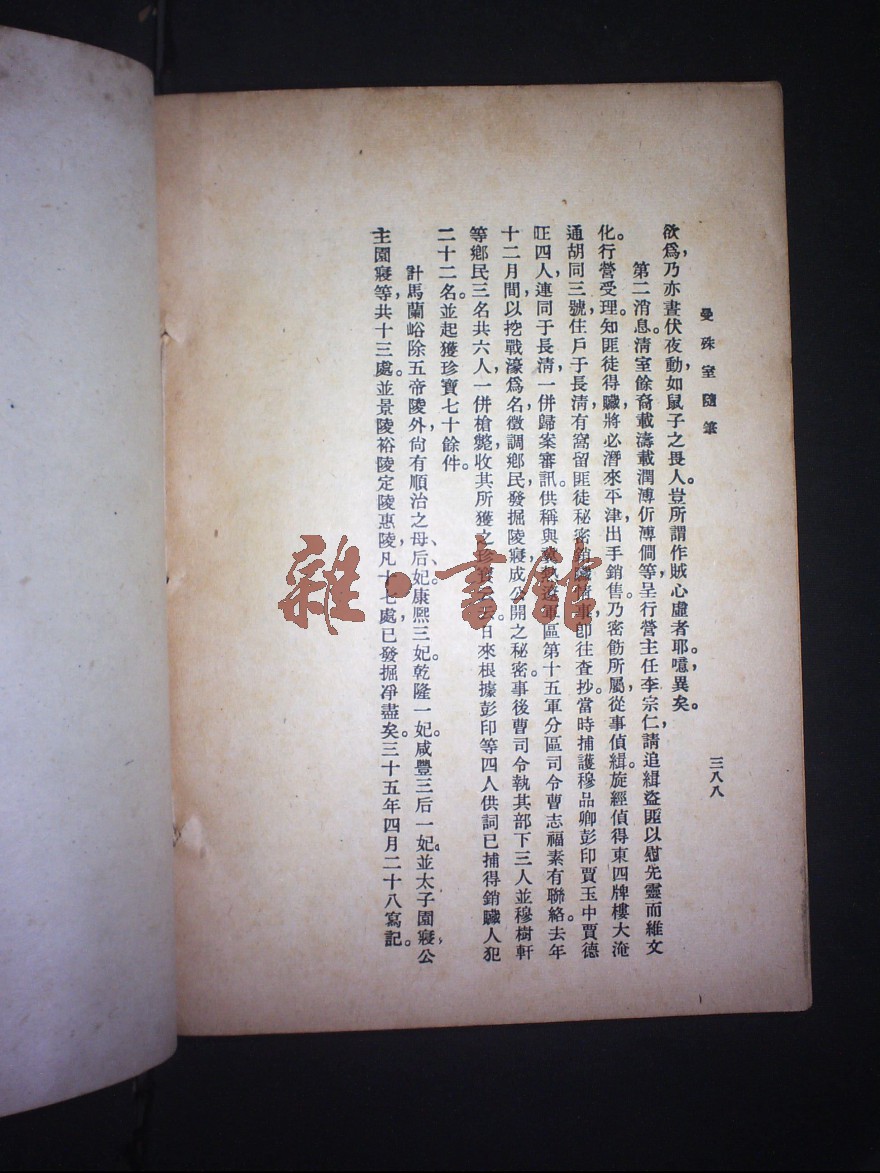 曼殊室隨筆
三八八
欲爲，乃亦晝伏夜動如鼠子之畏人。豈所謂作賊心虛者耶。噫，異矣。
第二消息。清室餘裔載濤載潤溥伒溥僩等，呈行營主任李宗仁，請追緝盜匪以慰先靈而維文
化。行營受理。知匪徒得贓，將必潛來平津出手銷售。乃密飭所屬，從事偵緝。旋經偵得東四牌樓大淹
通胡同三號住戶于長清，有窩留匪徒秘密銷贓情事，卽往查抄。當時捕護穆品卿彭印賈玉中賈德
旺四人，連同于長清，一併歸案審訊。供稱與冀熱遼軍區第十五軍分區司令曹志福素有聯絡。去年
十二月間，以挖戰濠爲名，徵調鄉民，發掘陵寢，成公開之秘密。事後曹司令執其部下三人，並穆樹軒
等鄉民三名，共六人，一併槍斃，收其所獲之珍寶去。日來根據彭印等四人供詞，已捕得銷贓人犯
二十二名。並起獲珍寶七十餘件。
計馬蘭峪除五帝陵外，尙有順治之母后、妃，康熙三妃。乾隆一妃。咸豐三后一妃。並太子園寢，公
主園寢等，共十三處。並景陵裕陵定陵惠陵，凡十七處，已發掘凈盡矣。三十五年四月二十八寫記。
雜·書館